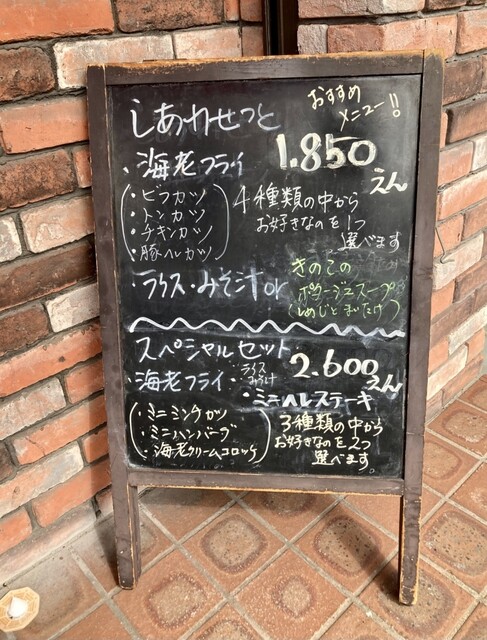 おすすめ
メニュー!!
しあわせっと
・海老フライ 1.850えん
・ビフカツ
・トンカツ
・チキンカツ
・豚ヘレカツ
4種類の中から
お好きなのを1つ
選べます
・ライス・みそ汁or
きのこの
ポタージュスープ
(しめじとまいたけ)
スペシャルセット
2.600えん
・海老フライ
・ライス
・ミニヘレステーキ
・ミニミンチカツ
・ミニハンバーグ
・海老クリームコロッケ
3種類の中から
お好きなのを2つ
選べます。